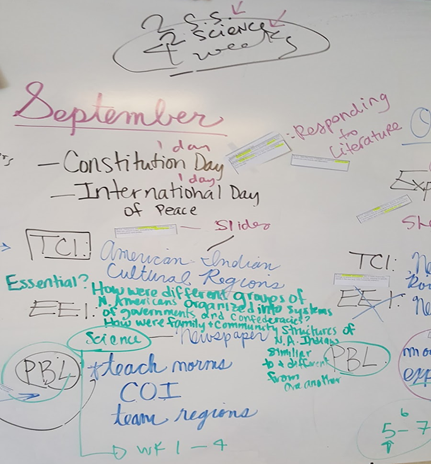 2 S.S.
2 Science
4 weeks
September
1 day
— Constitution Day
: Responding
to
Literature
1 day
— International Day
of Peace
Slides
TCI:
American Indian
Cultural Regions
Essential?
How were different groups of
N. Americans organized into systems
of governments and confederacies?
How were family + community structures of
N.A. Indians
similar
to & different
from
one another
EEI:
Science
Newspaper
PBL
*teach norms
COI
team regions
WK 1 – 4
TCI:
EEI
PBL
6
5 – 7